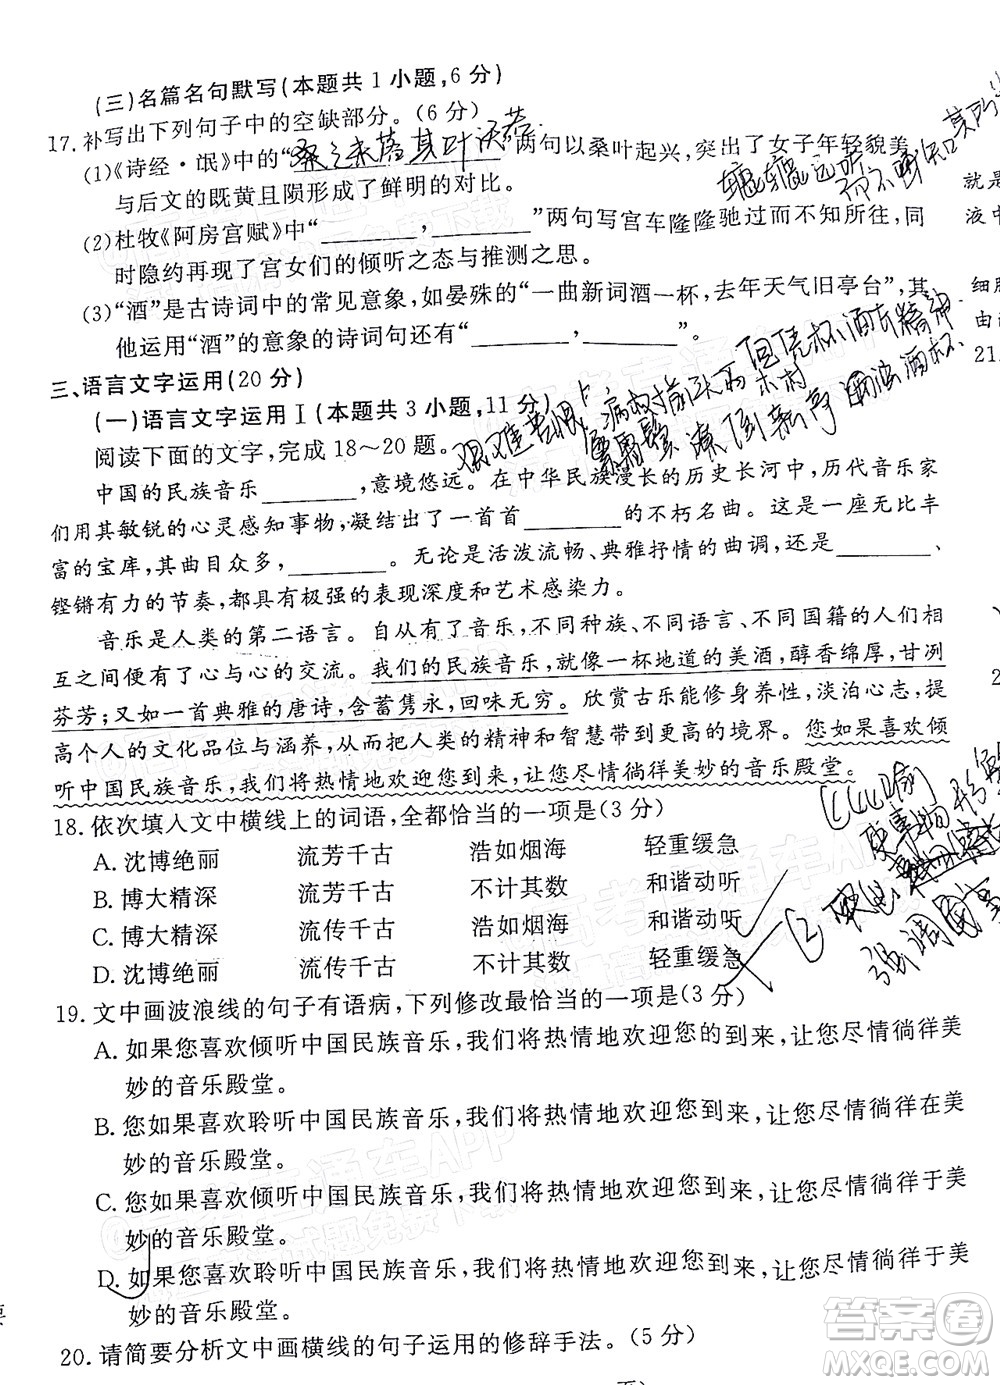 (三)名篇名句默写(本题共1小题,6分)
17.补写出下列句子中的空缺部分。(6分)
(1)《诗经·氓》中的“桑之未落 其叶沃若”两句以桑叶起兴,突出了女子年轻貌美,
与后文的既黄且陨形成了鲜明的对比。
辘辘远听
(2)杜牧《阿房宫赋》中“________,________”两句写宫车隆隆驰过而不知所往,同
时隐约再现了宫女们的倾听之态与推测之思。
(3)“酒”是古诗词中的常见意象,如晏殊的“一曲新词酒一杯,去年天气旧亭台”,其
他运用“酒”的意象的诗词句还有“________,________”。
艰难苦恨繁霜鬓 潦倒新亭浊酒杯
三、语言文字运用(20分)
(一)语言文字运用Ⅰ(本题共3小题,11分)
阅读下面的文字,完成18～20题。
中国的民族音乐________,意境悠远。在中华民族漫长的历史长河中,历代音乐家
们用其敏锐的心灵感知事物,凝结出了一首首________的不朽名曲。这是一座无比丰
富的宝库,其曲目众多,________。无论是活泼流畅、典雅抒情的曲调,还是________、
铿锵有力的节奏,都具有极强的表现深度和艺术感染力。
音乐是人类的第二语言。自从有了音乐,不同种族、不同地域、不同国籍的人们相
互之间便有了心与心的交流。我们的民族音乐,就像一杯地道的美酒,醇香绵厚,甘洌
芬芳;又如一首典雅的唐诗,含蓄隽永,回味无穷。欣赏古乐能修身养性,淡泊心志,提
高个人的文化品位与涵养,从而把人类的精神和智慧带到更高的境界。您如喜欢倾
听中国民族音乐,我们将热情地欢迎您到来,让您尽情徜徉美妙的音乐殿堂。
18.依次填入文中横线上的词语,全都恰当的一项是(3分)
A.沈博绝丽 流芳千古 浩如烟海 轻重缓急
B.博大精深 流芳千古 不计其数 和谐动听
C.博大精深 流传千古 浩如烟海 和谐动听
D.沈博绝丽 流传千古 不计其数 轻重缓急
19.文中画波浪线的句子有语病,下列修改最恰当的一项是(3分)
A.如果您喜欢倾听中国民族音乐,我们将热情地欢迎您的到来,让您尽情徜徉美
妙的音乐殿堂。
B.如果您喜欢聆听中国民族音乐,我们将热情地欢迎您到来,让您尽情徜徉在美
妙的音乐殿堂。
C.您如果喜欢倾听中国民族音乐,我们将热情地欢迎您到来,让您尽情徜徉于美
妙的音乐殿堂。
D.如果您喜欢聆听中国民族音乐,我们将热情地欢迎您的到来,让您尽情徜徉于美
妙的音乐殿堂。
20.请简要分析文中画横线的句子运用的修辞手法。(5分)
就是
液中
细胞
由
21.
答案圈
MXQE.COM